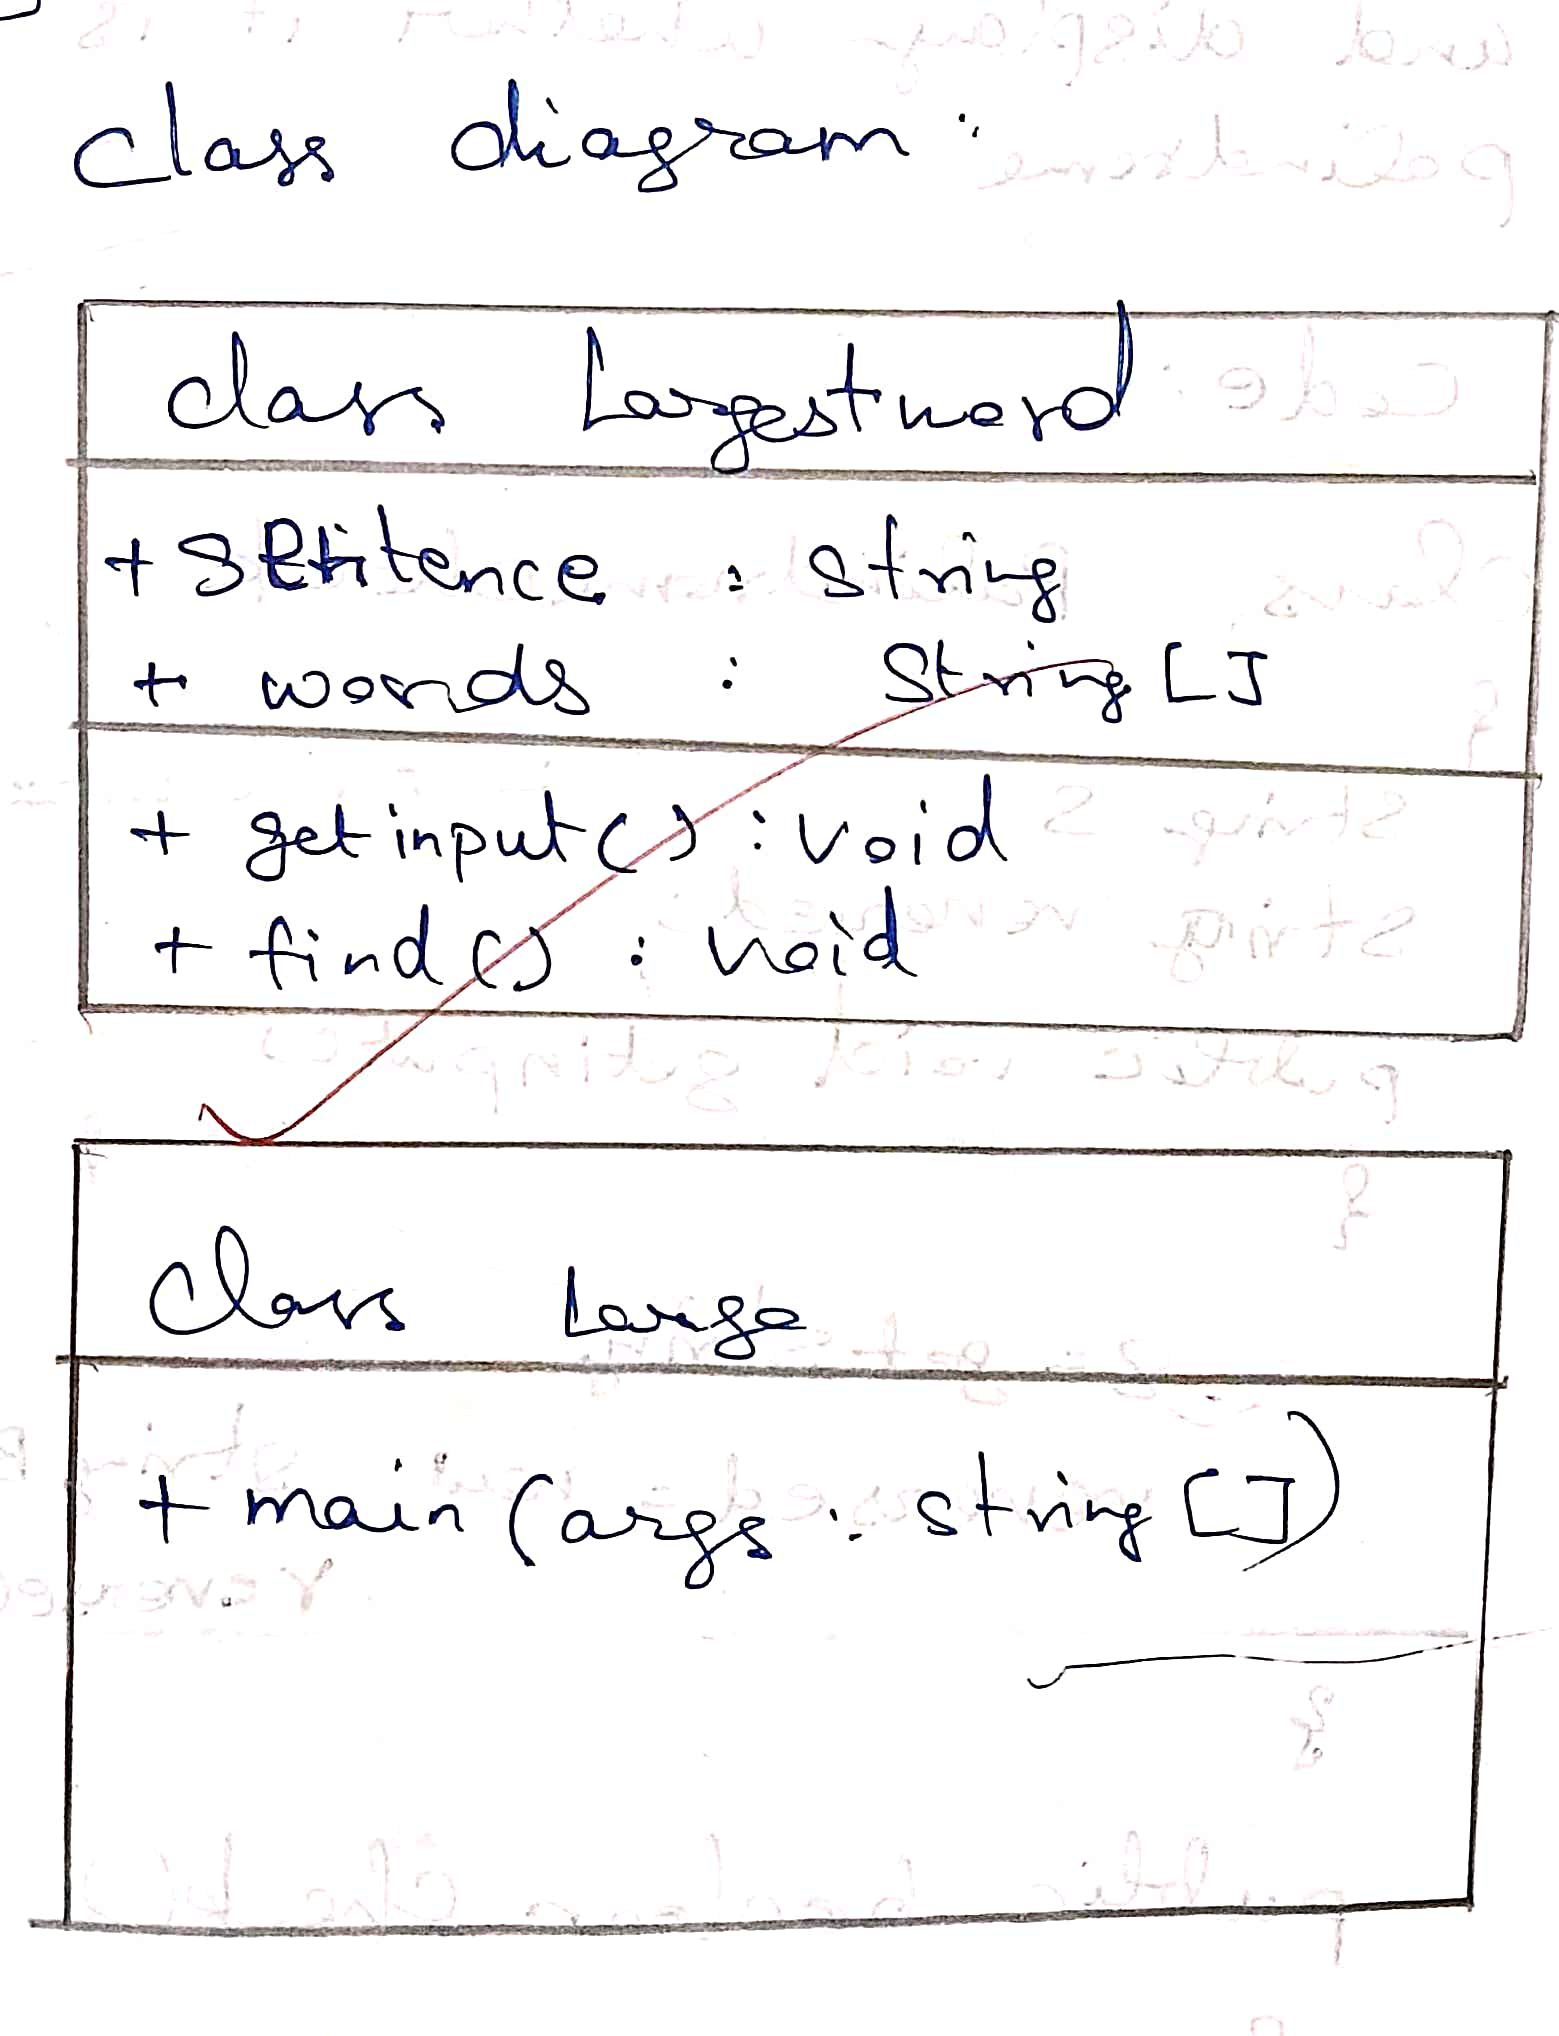 class diagram:
class Largestword
+ sentence : string
+ words : String []
+ getinput() : void
+ find() : void
class Large
+ main (args : string [])